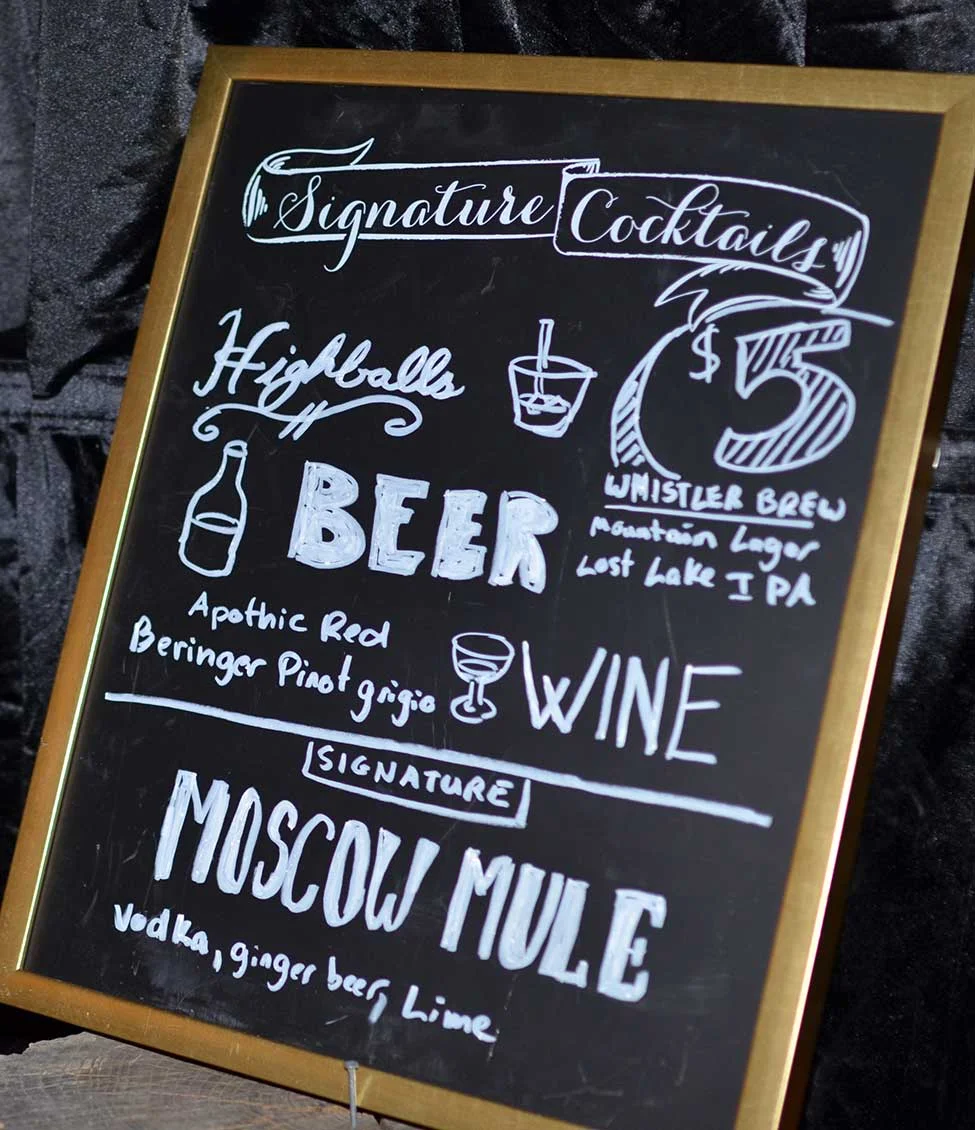 Signature Cocktails
Highballs
$5
BEER
WHISTLER BREW
Mountain Lager
Lost Lake IPA
Apothic Red
Beringer Pinot grigio
WINE
SIGNATURE
MOSCOW MULE
Vodka, ginger beer, Lime